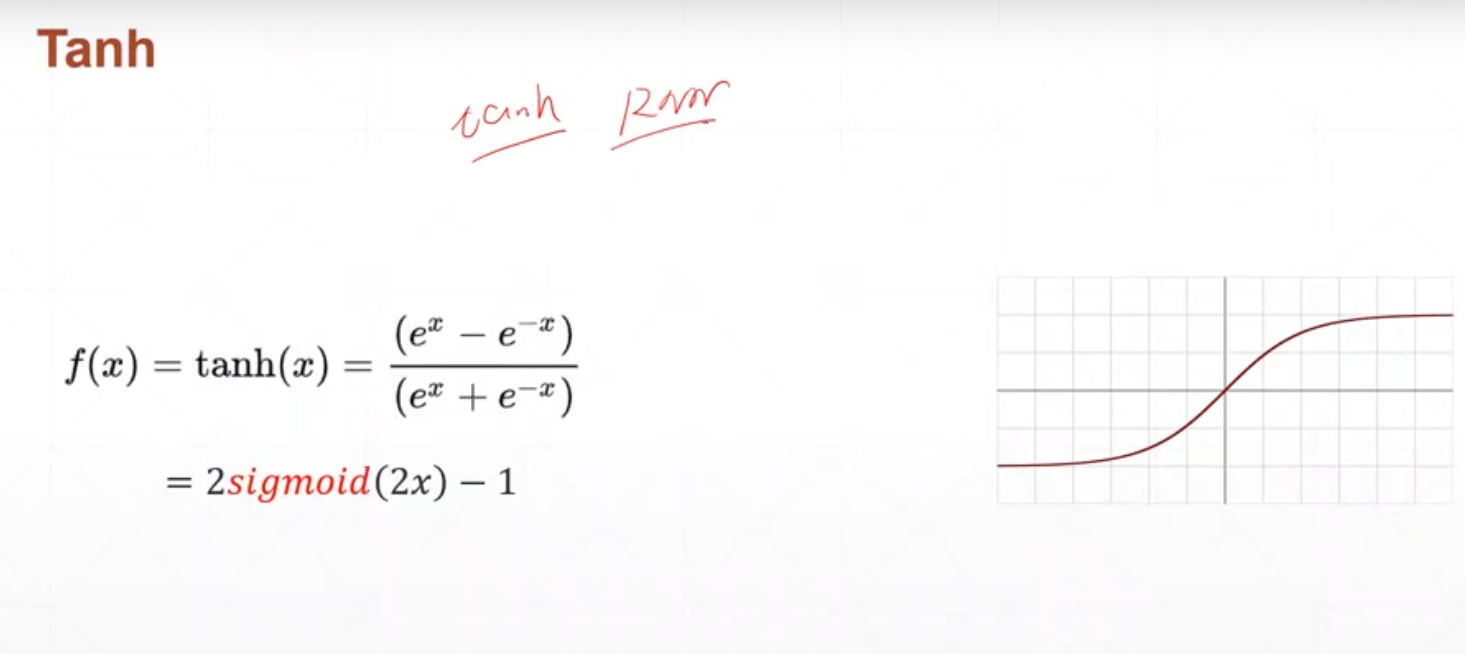 Tanh
tanh
f(x) = tanh(x) = (eˣ − e⁻ˣ) / (eˣ + e⁻ˣ)
= 2sigmoid(2x) − 1